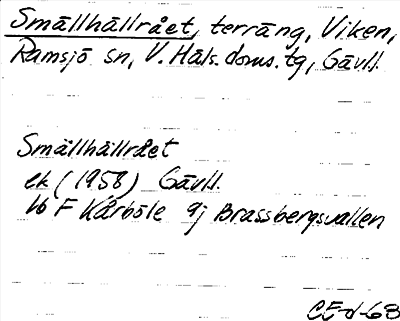 Smällhällrået, terräng, Viken,
Ramsjö sn, V. Häls. doms. tg, Gävl.
Smällhällrået
ek (1958) Gävl.
16 F Kårböle 9j Brassbergsvallen
CE-d-68